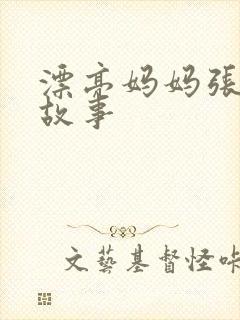 漂亮妈妈張
故事
文藝基督怪咔